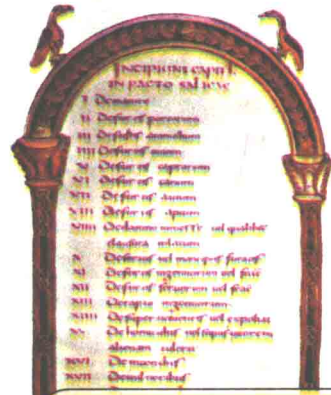 Incipiunt capitl
in pacto salicae
I De mannire
II De furtis porcorum
III De furtis animalium
IIII De furtis ouium
V De furtis caprarum
VI De furtis canum
VII De furtis auium
VIII De furtis apium
VIIII uel qualibet
clausura
X De seruis uel mancipiis furatis
XI De furtis ingenuorum uel
XII De furtis seruorum uel
XIII De raptu ingenuorum
XIIII De super uenientis uel expoliatis
XV De homicidiis uel uxorem
alienam tulerit
XVI De incendiis
XVII De uulneribus